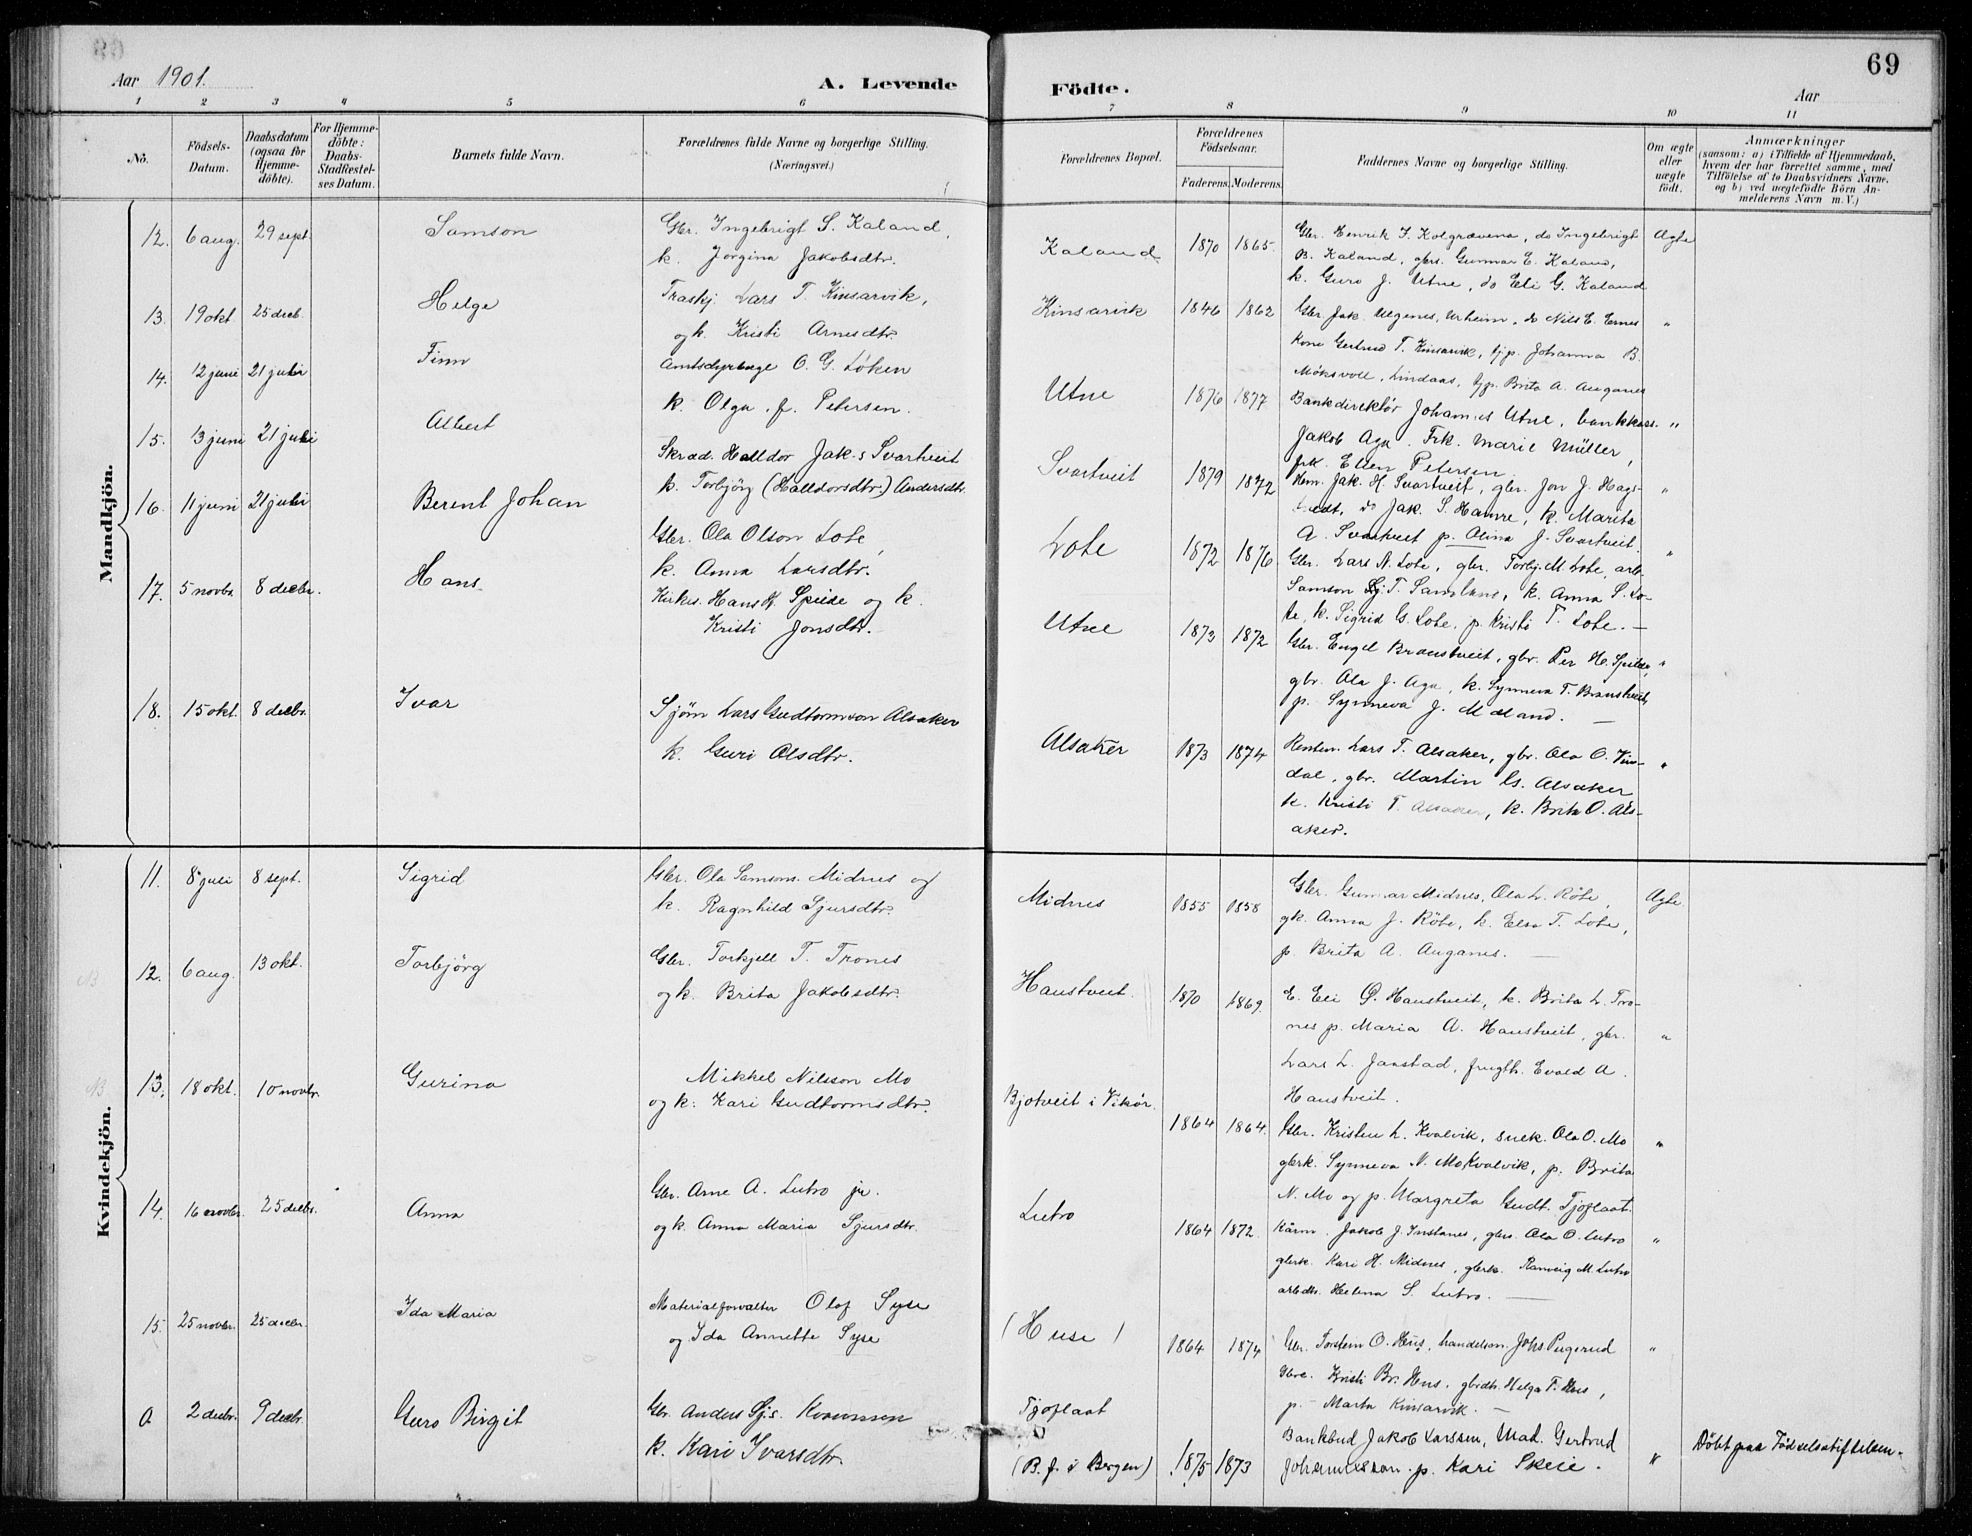 69
Aar 1901.
A. Levende Födte.
Aar
1 2 3 4 5 6 7 8 9 10 11
No.
Födsels-Datum.
Daabsdatum (ogsaa for Hjemme-döbte).
For Hjemme-döbte: Daabs-Stadfæstel-ses Datum.
Barnets fulde Navn.
Forældrenes fulde Navne og borgerlige Stilling.
(Næringsvei.)
Forældrenes Bopæl.
Forældrenes Födselsaar.
Faderens. Moderens.
Faddernes Navne og borgerlige Stilling.
Om ægte eller uægte födt.
Anmærkninger
(saasom: a) i Tilfælde af Hjemmedaab,
hvem der har forrettet samme, med
Tilföielse af to Daabsvidners Navne,
og b) ved uægtefödte Börn An-
melderens Navn m. V.)
Mandkjön.
12. 6 aug. 29 sept. Samson
Gbr. Ingebrigt S. Kaland,
k. Jorgina Jakobsdtr.
Kaland 1870 1865.
Gbr. Henrik J. Kolgrævena, do Ingebrigt
B. Kaland, gbrs. Gunnar E. Kaland,
k. Guro J. Utne, do Eli G. Kaland
Ægte
13. 19 okt. 25 decb. Helge
Traskj. Lars T. Kinsarvik,
og k. Kristi Arnesdtr.
Kinsarvik 1846 1862
Gbr. Jak. Ulgenes, Urheim, do Nils E. Ernes
Kone Gertrud T. Kinsarvik, tj.p. Johanna B.
Möksvoll, Lindaas, tjp. Brita A. Auganes
"
14. 12 juni 21 juli Finn
Amtsdyrlæge O. G. Löken
k. Olga f. Petersen.
Utne 1876 1877
Bankdirektör Johannes Utne, bankkass.
Jakob Aga. Frk. Marie Müller,
frk. Ellen Petersen
"
15. 13 juni 21 juli Albert
Skræd. Halldor Jak.s Svartveit
k. Torbjörg (Halldorsdtr.) Andersdtr.
Svartveit 1879 1872
Hm. Jak. H. Svartveit, gbr. Jon J. Hags-
tvedt, do Jak. S. Hamre, k. Marita
A. Svartveit p. Olina J. Svartveit.
"
16. 11 juni 21 juli Berent Johan
Gbr. Ola Olson Lote,
k. Anna Larsdtr.
Lote 1872 1876
Gbr. Lars N. Lote, gbr. Torbj. M. Lote, arb.
Samson Sj. T. Samland, k. Anna S. Lo-
te, k. Sigrid G. Lote, p. Kristi T. Lote. —
"
17. 5 novbr. 8 decbr. Hans
Kirkes. Hans H. Spilde og k.
Kristi Jonsdtr.
Utne 1873 1872
Gbr. Engel Braustveit, gbr. Per H. Spilde,
gbr. Ola J. Aga, k. Synneva T. Braustveit,
p. Synneva J. Mæland. —
"
18. 15 okt. 8 decbr. Ivar
Sjöm Lars Gudtormson Alsaker
k. Guri Olsdtr.
Alsaker 1873 1874
Renten. Lars T. Alsaker, gbr. Ola O. Vin-
dal, gbr. Martin G. Alsaker
k. Kristi T. Alsaker, k. Brita O. Als-
aker.
"
Kvindekjön.
11. 8 juli 8 sept. Sigrid
Gbr. Ola Samsons. Midnes og
k. Ragnhild Sjursdtr.
Midnes 1855 1858
Gbr. Gunnar Midnes, Ola L. Röte,
gk. Anna J. Röte, k. Elsa T. Lote,
p. Brita A. Auganes. —
Ægte.
NB 12. 6 aug. 13 okt. Torbjörg
Gbr. Torkjell T. Trones
og k. Brita Jakobsdtr.
Haustveit. 1870 1869.
E. Eli O. Haustveit, k. Brita L. Tro-
nes p. Maria A. Haustveit, gbr.
Lars L. Jaastad, frugth. Evald A.
Haustveit.
"
NB 13. 18 okt. 10 novbr. Gurina
Mikkel Nilsson Mo
og k. Kari Gudtormsdtr.
Bjotveit i Vikör. 1864 1864.
Gbr. Kristen L. Kvalvik, snek. Ola O. Mo
gbrk. Synneva N. Mo Kvalvik, p. Brita
N. Mo og p. Margreta Gudt. Tjoflaat.
"
14. 16 novbr. 25 decbr. Anna
Gbr. Arne A. Lutro jr.
og k. Anna Maria Sjursdtr.
Lutro 1864 1872.
Kårm. Jakob J. Instanes, gbrs. Ola O. Lutro
gbrk. Kari H. Midnes, gbrk. Ranveig M. Lutro
arbdtr. Helena S. Lutro. —
"
15. 25 novbr. 25 decbr. Ida Maria
Materialforvalter Olof Syse
og Ida Annette Syse
(Huse) 1864 1874
Gbr. Torstein O. Hus, handelsm. Johs Pugerud
Gbre. Kristi Br. Hus, gbrdtr. Helga T. Hus,
p. Marta Kinsarvik. —
"
a 2 decbr. 9 decbr. Guro Birgit
Gbr. Anders Sjs. Kvamsen
k. Kari Ivarsdtr.
Tjoflaat
(B. f. i Bergen) 1875 1873
Bankbud Jakob Larssen, Mad. Gertrud
Johannesson. p. Kari Skeie.
"
Döbt paa Födselsstiftelsen.